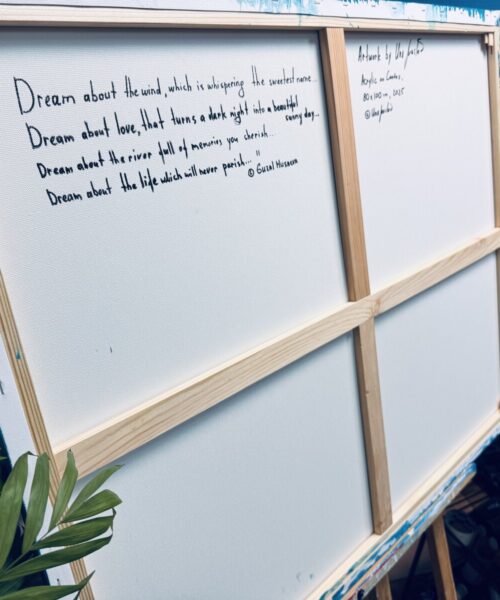 Dream about the wind, which is whispering the sweetest name...
Dream about love, that turns a dark night into a beautiful
sunny day...
Dream about the river full of memories you cherish...
Dream about the life which will never perish... "
© Guzal Husaeva
Artwork by
Acrylic on Canvas,
80x100cm, 2025
©